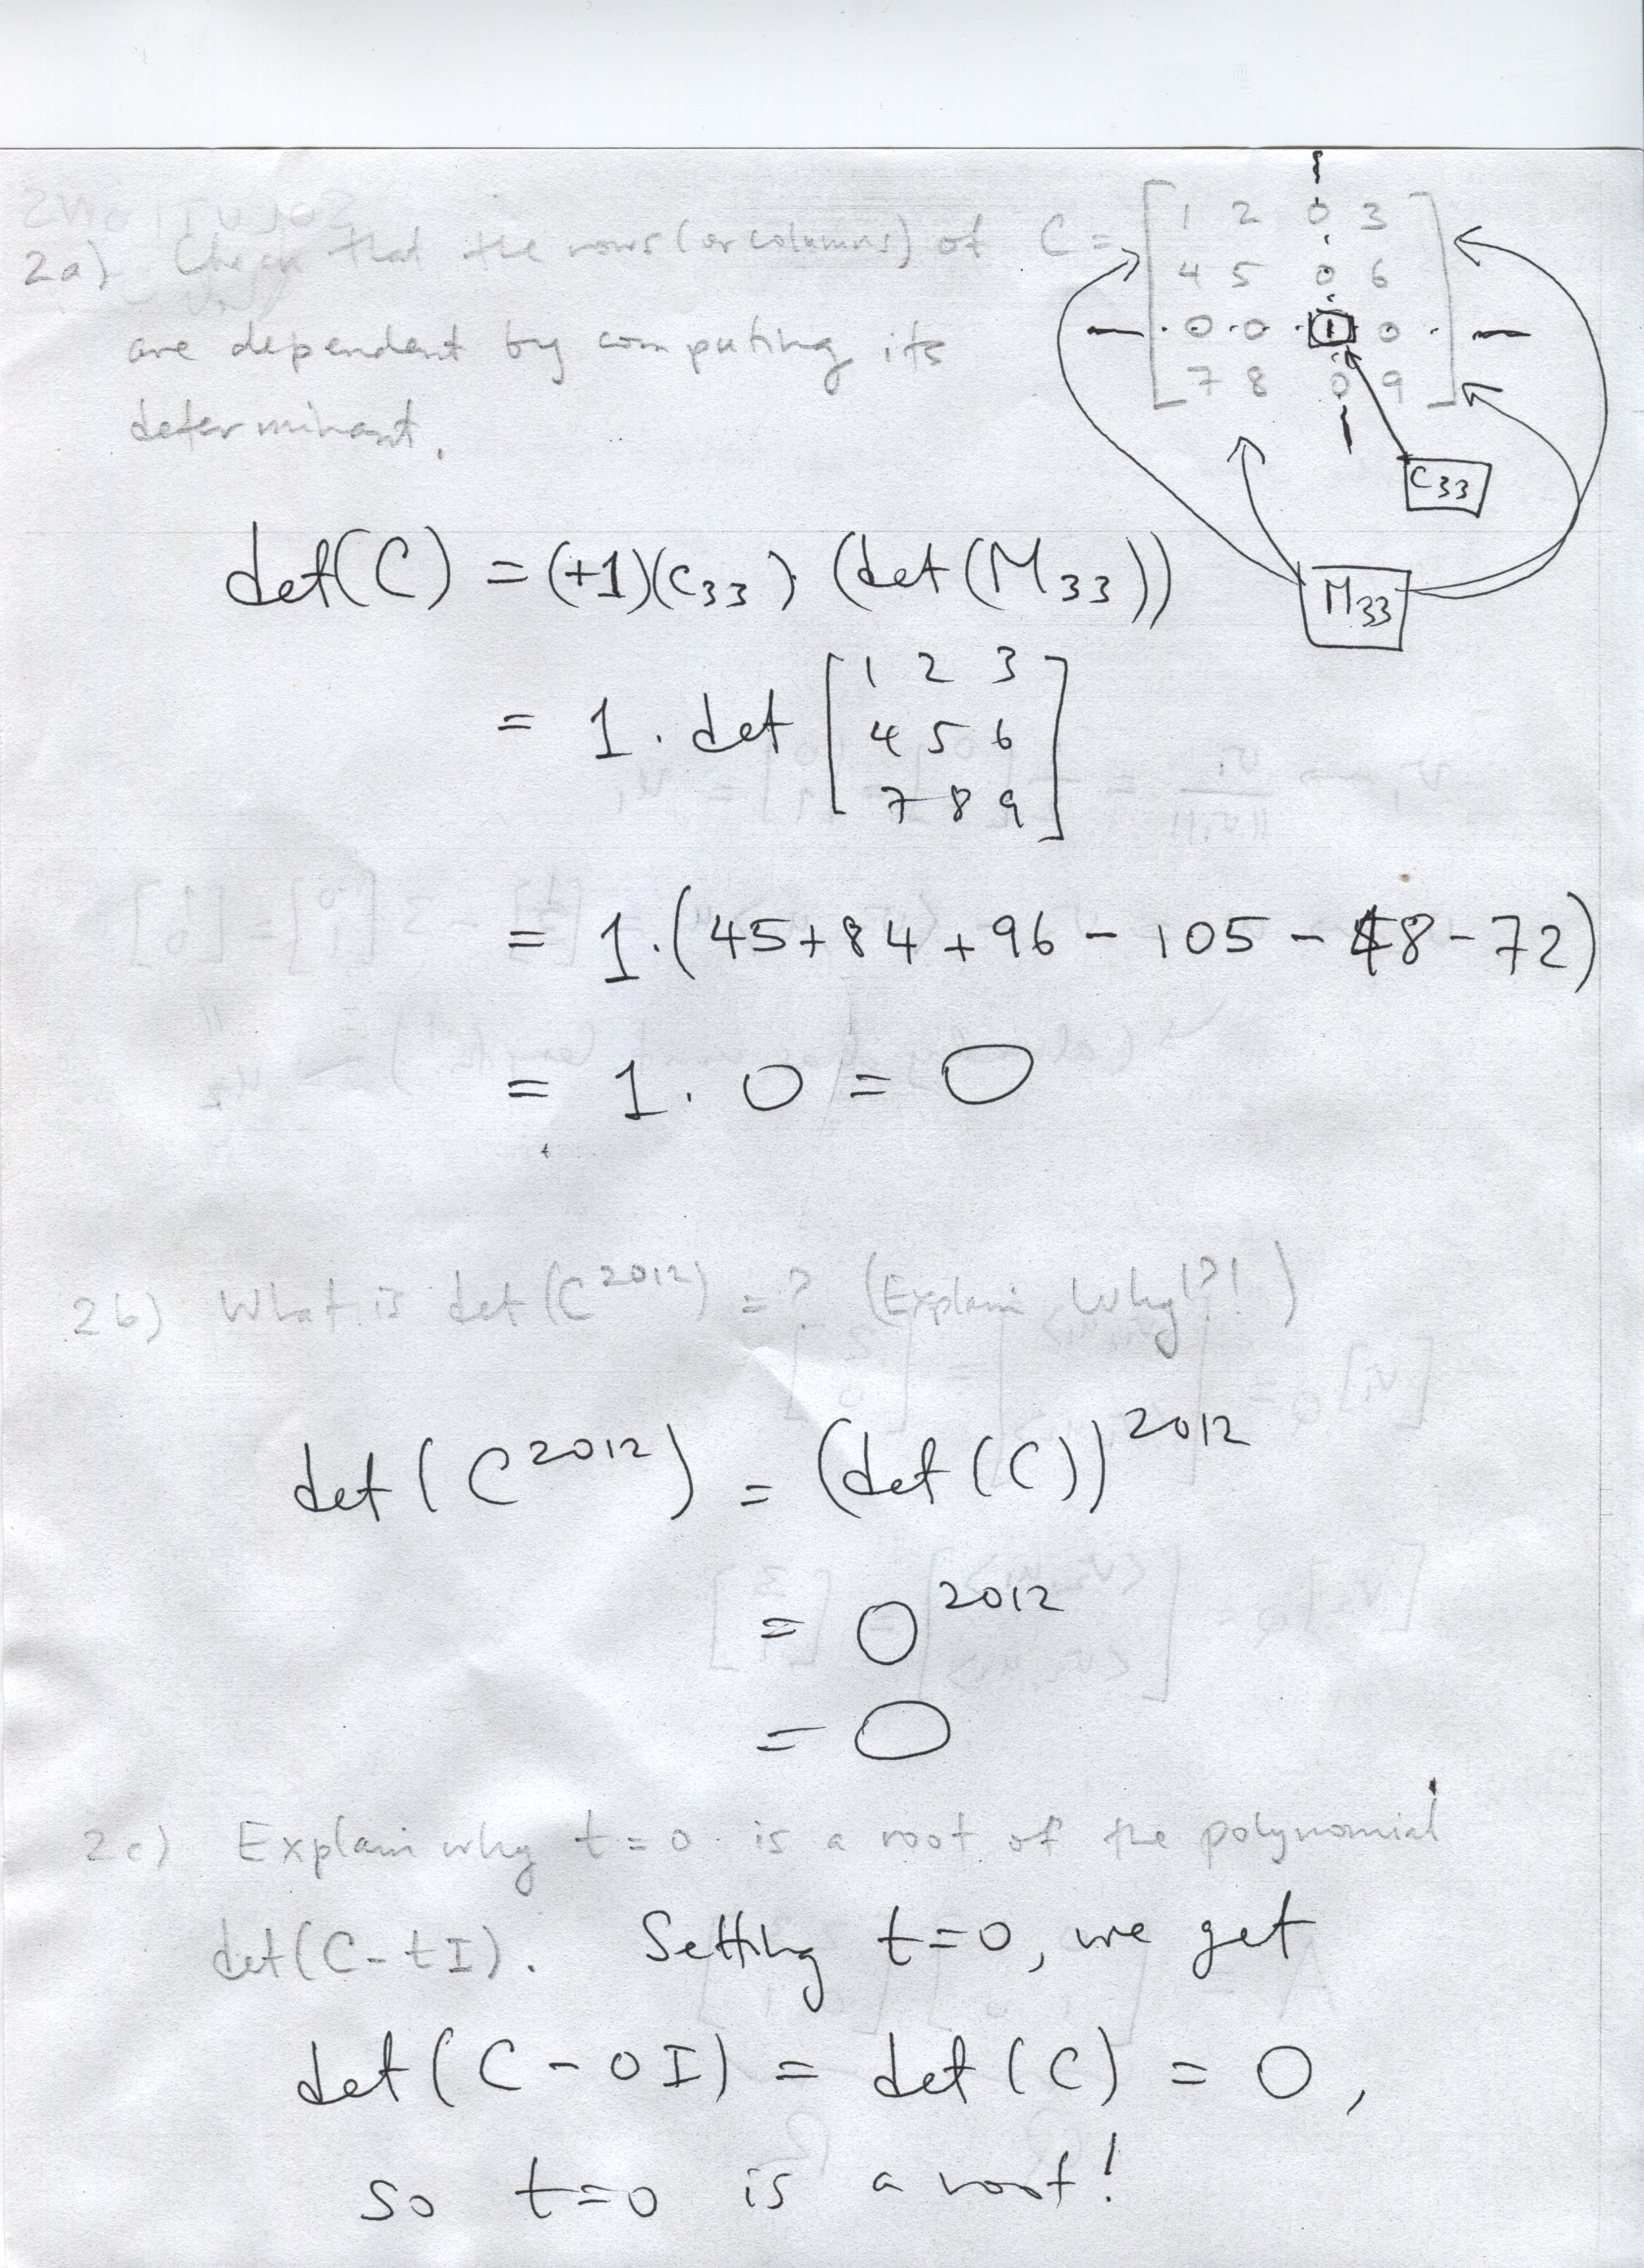 2a) Check that the rows (or columns) of C = [1 2 0 3
4 5 0 6
0 0 1 0
7 8 0 9]
are dependent by computing its
determinant.
C33
M33
det(C) = (+1)(c33)·(det(M33))
= 1 · det [1 2 3
4 5 6
7 8 9]
= 1·(45+84+96-105-48-72)
= 1 · 0 = 0
2b) What is det(C^2012) = ? (Explain Why!?!)
det(C^2012) = (det(C))^2012
= 0^2012
= 0
2c) Explain why t=0 is a root of the polynomial
det(C-tI). Setting t=0, we get
det(C-0I) = det(C) = 0,
so t=0 is a root!